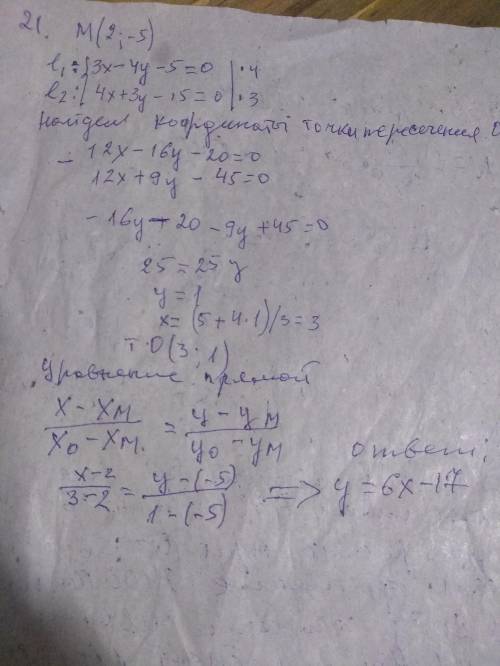 21. M(2;-5)
l₁: {3x-4y-5=0 |·4
l₂: {4x+3y-15=0 |·3
найдем координаты точки пересечения
- 12x-16y-20=0
12x+9y-45=0
-16y-20-9y+45=0
25=25y
y=1
x=(5+4·1)/3=3
т·O(3;1)
Уравнение прямой
(x-xM)/(xO-xM) = (y-yM)/(yO-yM)
ответ:
(x-2)/(3-2) = (y-(-5))/(1-(-5)) => y=6x-17